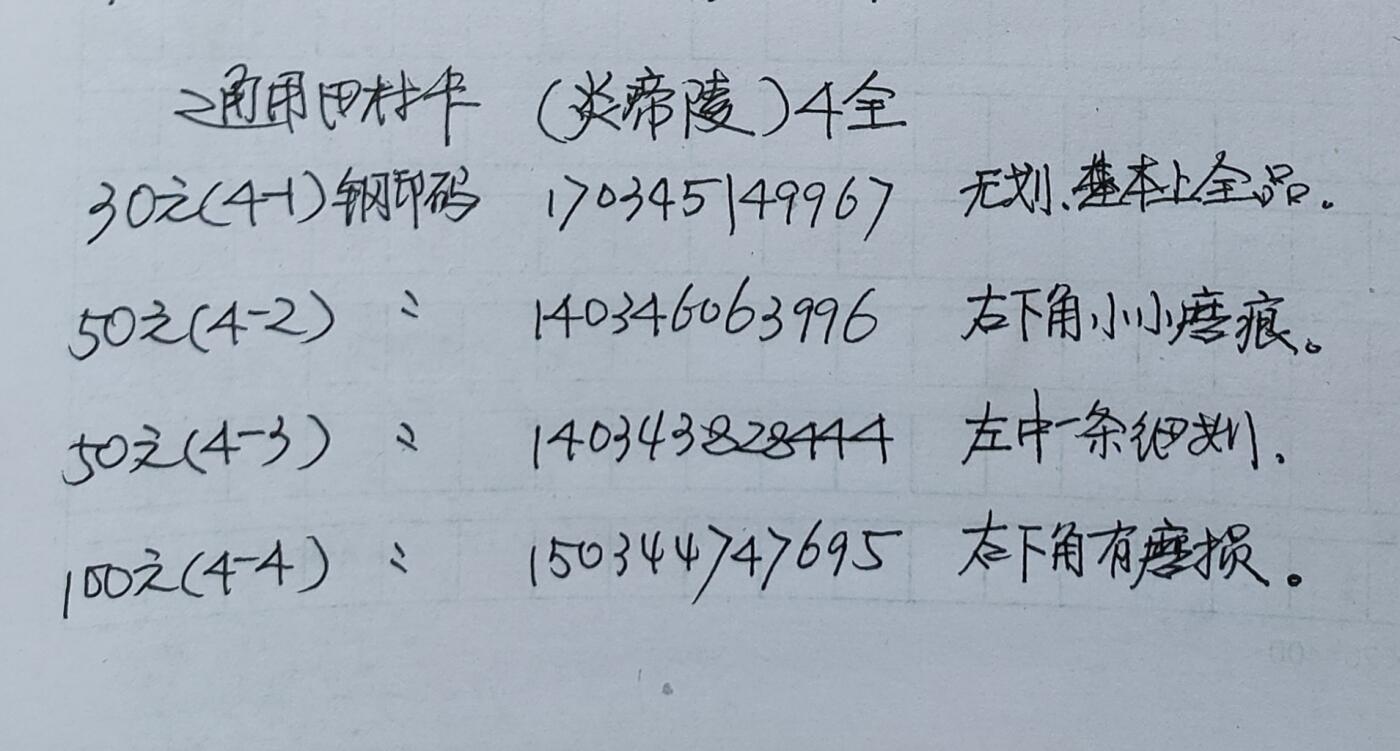 通用田村卡 (炎帝陵)4全
30元(4-1)钢印码 170345149967 无划、基本上全品。
50元(4-2) 〃 140346063996 右下角小小磨痕。
50元(4-3) 〃 140343828444 左中一条细划.
100元(4-4) 〃 150344747695 右下角有磨损。